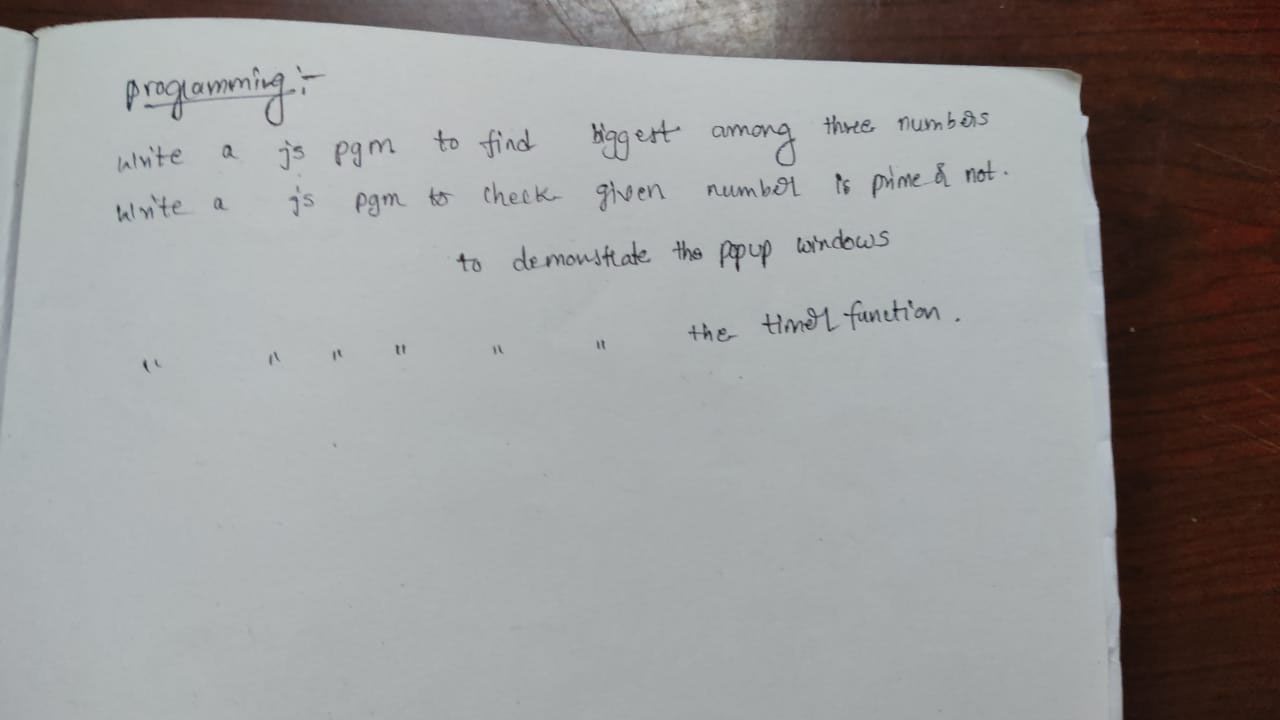 programming:-
write a js pgm to find biggest among three numbers
write a js pgm to check given number is prime or not.
to demonstrate the popup windows
" " " " " " the timer function.